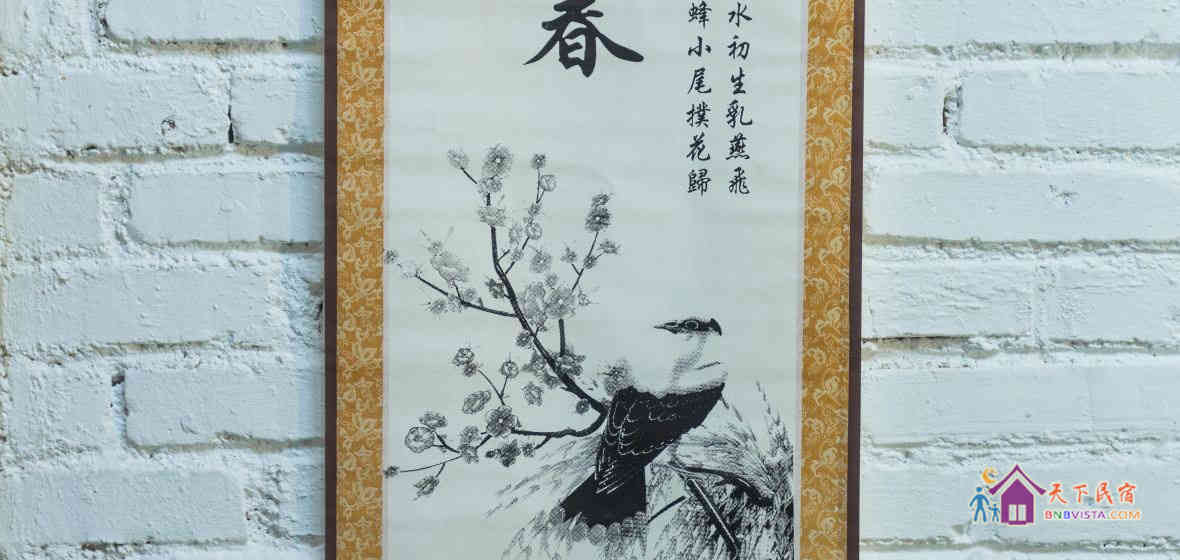 春
水初生乳燕飛
蜂小尾撲花歸
天下民宿
BNBVISTA.COM